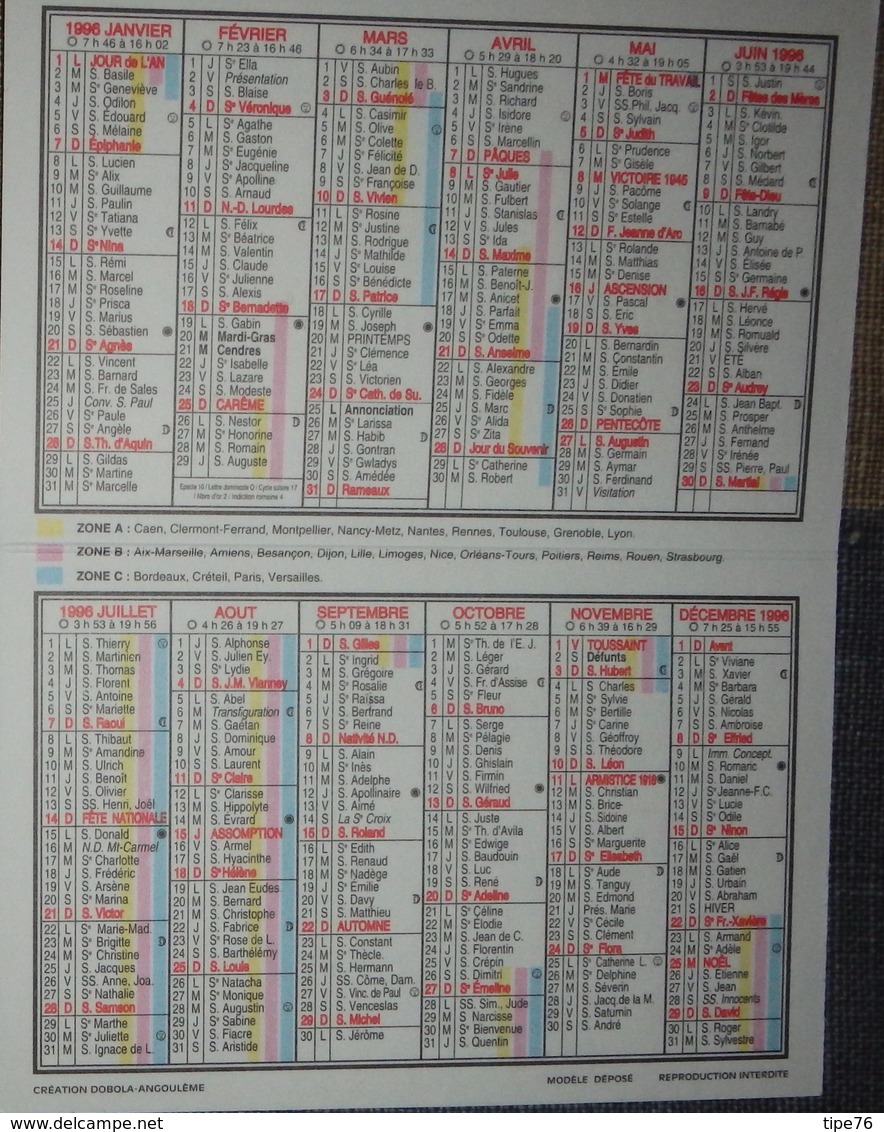 1996 JANVIER
7 h 46 à 16 h 02
1 L JOUR de L'AN
2 M S. Basile
3 M Sᵉ Geneviève
4 J S. Odilon
5 V S. Édouard
6 S S. Mélaine
7 D Épiphanie
8 L S. Lucien
9 M Sᵉ Alix
10 M S. Guillaume
11 J S. Paulin
12 V Sᵉ Tatiana
13 S Sᵉ Yvette
14 D Sᵉ Nina
15 L S. Rémi
16 M S. Marcel
17 M Sᵉ Roseline
18 J Sᵉ Prisca
19 V S. Marius
20 S S. Sébastien
21 D Sᵉ Agnès
22 L S. Vincent
23 M S. Barnard
24 M S. Fr. de Sales
25 J Conv. S. Paul
26 V Sᵉ Paule
27 S Sᵉ Angèle
28 D S.Th. d'Aquin
29 L S. Gildas
30 M Sᵉ Martine
31 M Sᵉ Marcelle
FÉVRIER
7 h 23 à 16 h 46
1 J Sᵉ Ella
2 V Présentation
3 S S. Blaise
4 D Sᵉ Véronique
5 L Sᵉ Agathe
6 M S. Gaston
7 M Sᵉ Eugénie
8 J Sᵉ Jacqueline
9 V Sᵉ Apolline
10 S S. Arnaud
11 D N.-D. Lourdes
12 L S. Félix
13 M Sᵉ Béatrice
14 M S. Valentin
15 J S. Claude
16 V Sᵉ Julienne
17 S S. Alexis
18 D Sᵉ Bernadette
19 L S. Gabin
20 M Mardi-Gras
21 M Cendres
22 J Sᵉ Isabelle
23 V S. Lazare
24 S S. Modeste
25 D CARÊME
26 L S. Nestor
27 M Sᵉ Honorine
28 M S. Romain
29 J S. Auguste
Epacte 10 / Lettre dominicale G / Cycle solaire 17
/ Nbre d'or 2 / Indiction romaine 4
MARS
6 h 34 à 17 h 33
1 V S. Aubin
2 S S. Charles le B.
3 D S. Guénolé
4 L S. Casimir
5 M S. Olive
6 M Sᵉ Colette
7 J Sᵉ Félicité
8 V S. Jean de D.
9 S Sᵉ Françoise
10 D S. Vivien
11 L Sᵉ Rosine
12 M Sᵉ Justine
13 M S. Rodrigue
14 J Sᵉ Mathilde
15 V Sᵉ Louise
16 S Sᵉ Bénédicte
17 D S. Patrice
18 L S. Cyrille
19 M S. Joseph
20 M PRINTEMPS
21 J S. Clémence
22 V Sᵉ Léa
23 S S. Victorien
24 D Sᵉ Cath. de Su.
25 L Annonciation
26 M Sᵉ Larissa
27 M S. Habib
28 J S. Gontran
29 V Sᵉ Gwladys
30 S S. Amédée
31 D Rameaux
AVRIL
5 h 29 à 18 h 20
1 L S. Hugues
2 M Sᵉ Sandrine
3 M S. Richard
4 J S. Isidore
5 V Sᵉ Irène
6 S S. Marcellin
7 D PÂQUES
8 L Sᵉ Julie
9 M S. Gautier
10 M S. Fulbert
11 J S. Stanislas
12 V S. Jules
13 S Sᵉ Ida
14 D S. Maxime
15 L S. Paterne
16 M S. Benoît-J.
17 M S. Anicet
18 J S. Parfait
19 V Sᵉ Emma
20 S Sᵉ Odette
21 D S. Anselme
22 L S. Alexandre
23 M S. Georges
24 M S. Fidèle
25 J S. Marc
26 V S. Alida
27 S Sᵉ Zita
28 D Jour du Souvenir
29 L Sᵉ Catherine
30 M S. Robert
MAI
4 h 32 à 19 h 05
1 M FÊTE du TRAVAIL
2 J S. Boris
3 V SS.Phil. Jacq.
4 S S. Sylvain
5 D Sᵉ Judith
6 L Sᵉ Prudence
7 M Sᵉ Gisèle
8 M VICTOIRE 1945
9 J S. Pacôme
10 V Sᵉ Solange
11 S Sᵉ Estelle
12 D F. Jeanne d'Arc
13 L Sᵉ Rolande
14 M S. Matthias
15 M Sᵉ Denise
16 J ASCENSION
17 V S. Pascal
18 S S. Eric
19 D S. Yves
20 L S. Bernardin
21 M S. Constantin
22 M S. Émile
23 J S. Didier
24 V S. Donatien
25 S Sᵉ Sophie
26 D PENTECÔTE
27 L S. Augustin
28 M S. Germain
29 M S. Aymar
30 J S. Ferdinand
31 V Visitation
JUIN 1996
3 h 53 à 19 h 44
1 S S. Justin
2 D Fêtes des Mères
3 L S. Kévin
4 M Sᵉ Clotilde
5 M S. Igor
6 J S. Norbert
7 V S. Gilbert
8 S S. Médard
9 D Fête-Dieu
10 L S. Landry
11 M S. Barnabé
12 M S. Guy
13 J S. Antoine de P.
14 V S. Élisée
15 S Sᵉ Germaine
16 D S. J.F. Régis
17 L S. Hervé
18 M S. Léonce
19 M S. Romuald
20 J S. Silvère
21 V ÉTÉ
22 S S. Alban
23 D Sᵉ Audrey
24 L S. Jean Bapt.
25 M S. Prosper
26 M S. Anthelme
27 J S. Fernand
28 V Sᵉ Irénée
29 S SS. Pierre, Paul
30 D S. Martial
ZONE A : Caen, Clermont-Ferrand, Montpellier, Nancy-Metz, Nantes, Rennes, Toulouse, Grenoble, Lyon.
ZONE B : Aix-Marseille, Amiens, Besançon, Dijon, Lille, Limoges, Nice, Orléans-Tours, Poitiers, Reims, Rouen, Strasbourg.
ZONE C : Bordeaux, Créteil, Paris, Versailles.
1996 JUILLET
3 h 53 à 19 h 56
1 L S. Thierry
2 M S. Martinien
3 M S. Thomas
4 J S. Florent
5 V S. Antoine
6 S Sᵉ Mariette
7 D S. Raoul
8 L S. Thibaut
9 M Sᵉ Amandine
10 M S. Ulrich
11 J S. Benoît
12 V S. Olivier
13 S SS. Henri, Joël
14 D FÊTE NATIONALE
15 L S. Donald
16 M N.D. Mt-Carmel
17 M Sᵉ Charlotte
18 J S. Frédéric
19 V S. Arsène
20 S Sᵉ Marina
21 D S. Victor
22 L Sᵉ Marie-Mad.
23 M Sᵉ Brigitte
24 M Sᵉ Christine
25 J S. Jacques
26 V SS. Anne, Joa.
27 S Sᵉ Nathalie
28 D S. Samson
29 L Sᵉ Marthe
30 M Sᵉ Juliette
31 M S. Ignace de L.
AOUT
4 h 26 à 19 h 27
1 J S. Alphonse
2 V S. Julien Ey.
3 S Sᵉ Lydie
4 D S. J.M. Vianney
5 L S. Abel
6 M Transfiguration
7 M S. Gaëtan
8 J S. Dominique
9 V S. Amour
10 S S. Laurent
11 D Sᵉ Claire
12 L Sᵉ Clarisse
13 M S. Hippolyte
14 M S. Evrard
15 J ASSOMPTION
16 V S. Armel
17 S S. Hyacinthe
18 D Sᵉ Hélène
19 L S. Jean Eudes
20 M S. Bernard
21 M S. Christophe
22 J S. Fabrice
23 V Sᵉ Rose de L.
24 S S. Barthélémy
25 D S. Louis
26 L Sᵉ Natacha
27 M Sᵉ Monique
28 M S. Augustin
29 J Sᵉ Sabine
30 V S. Fiacre
31 S S. Aristide
SEPTEMBRE
5 h 09 à 18 h 31
1 D S. Gilles
2 L Sᵉ Ingrid
3 M S. Grégoire
4 M Sᵉ Rosalie
5 J Sᵉ Raïssa
6 V S. Bertrand
7 S Sᵉ Reine
8 D Nativité N.D.
9 L S. Alain
10 M Sᵉ Inès
11 M S. Adelphe
12 J S. Apollinaire
13 V S. Aimé
14 S La Sᵉ Croix
15 D S. Roland
16 L Sᵉ Edith
17 M S. Renaud
18 M Sᵉ Nadège
19 J Sᵉ Émilie
20 V S. Davy
21 S S. Matthieu
22 D AUTOMNE
23 L S. Constant
24 M Sᵉ Thècle
25 M S. Hermann
26 J SS. Côme, Dam.
27 V S. Vinc. de Paul
28 S S. Venceslas
29 D S. Michel
30 L S. Jérôme
OCTOBRE
5 h 52 à 17 h 28
1 M Sᵉ Th. de l'E. J.
2 M S. Léger
3 J S. Gérard
4 V S. Fr. d'Assise
5 S Sᵉ Fleur
6 D S. Bruno
7 L S. Serge
8 M Sᵉ Pélagie
9 M S. Denis
10 J S. Ghislain
11 V S. Firmin
12 S S. Wilfried
13 D S. Géraud
14 L S. Juste
15 M Sᵉ Th. d'Avila
16 M Sᵉ Edwige
17 J S. Baudouin
18 V S. Luc
19 S S. René
20 D Sᵉ Adeline
21 L Sᵉ Céline
22 M Sᵉ Élodie
23 M S. Jean de C.
24 J S. Florentin
25 V S. Crépin
26 S S. Dimitri
27 D Sᵉ Émeline
28 L SS. Sim., Jude
29 M S. Narcisse
30 M Sᵉ Bienvenue
31 J S. Quentin
NOVEMBRE
6 h 39 à 16 h 29
1 V TOUSSAINT
2 S Défunts
3 D S. Hubert
4 L S. Charles
5 M Sᵉ Sylvie
6 M Sᵉ Bertille
7 J Sᵉ Carine
8 V S. Géoffroy
9 S S. Théodore
10 D S. Léon
11 L ARMISTICE 1918
12 M S. Christian
13 M S. Brice
14 J S. Sidoine
15 V S. Albert
16 S Sᵉ Marguerite
17 D Sᵉ Elisabeth
18 L Sᵉ Aude
19 M S. Tanguy
20 M S. Edmond
21 J Prés. Marie
22 V Sᵉ Cécile
23 S S. Clément
24 D Sᵉ Flora
25 L Sᵉ Catherine L.
26 M Sᵉ Delphine
27 M S. Séverin
28 J S. Jacq.de la M.
29 V S. Saturnin
30 S S. André
DÉCEMBRE 1996
7 h 25 à 15 h 55
1 D Avent
2 L Sᵉ Viviane
3 M S. Xavier
4 M Sᵉ Barbara
5 J S. Gérald
6 V S. Nicolas
7 S S. Ambroise
8 D Sᵉ Elfried
9 L Imm. Concept.
10 M S. Romaric
11 M S. Daniel
12 J Sᵉ Jeanne-F.C.
13 V Sᵉ Lucie
14 S Sᵉ Odile
15 D Sᵉ Ninon
16 L Sᵉ Alice
17 M S. Gaël
18 M S. Gatien
19 J S. Urbain
20 V S. Abraham
21 S HIVER
22 D Sᵉ Fr.-Xavière
23 L S. Armand
24 M Sᵉ Adèle
25 M NOËL
26 J S. Etienne
27 V S. Jean
28 S SS. Innocents
29 D S. David
30 L S. Roger
31 M S. Sylvestre
CRÉATION DOBOLA-ANGOULÊME
MODÈLE DÉPOSÉ
REPRODUCTION INTERDITE
tipe76